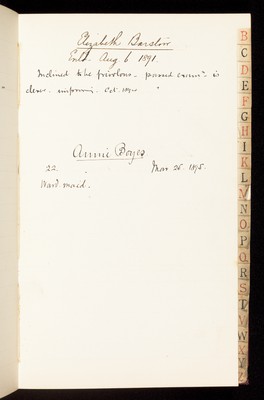 Elizabeth Barstow
Entd. Aug 6 1891.
Inclined to be frivolous - passed exams. - is
clever. improving. Oct. 1892
Annie Boyes
22. Mar 25. 1895.
Ward-maid.
B
C
D
E
F
G
H
I
K
L
M
N
O
P
Q
R
S
T
V
W
X
Y
Z